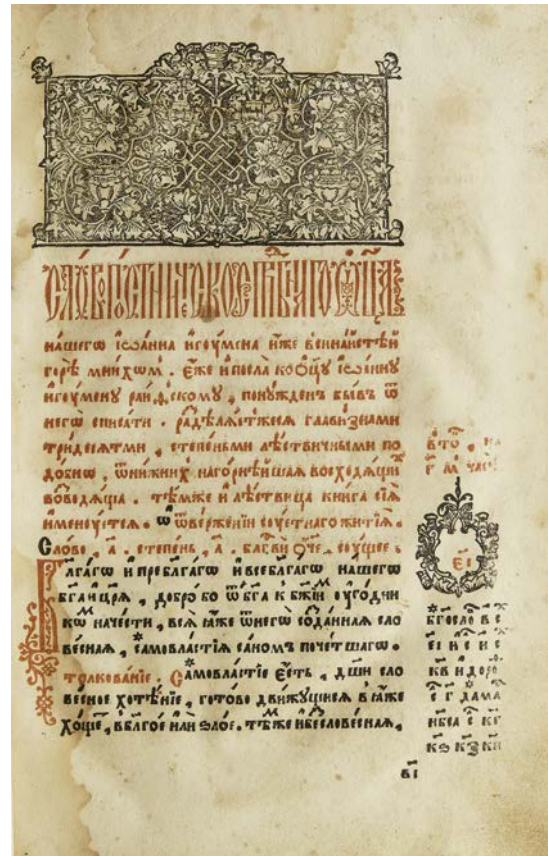 Сло́во по́стничєскоє прп҃бнаго ѻ҆ц҃а̀
нашегѡ і҆ѡа́нна и҆гоу́мена и҆́же в синаи́стѣй
горѣ̀ мни́хѡм . є҆́же и҆ посла̀ ко ѻ҆ц҃у̀ і҆ѡа́нну
и҆гоу́мену раи́ѳскому , пону́жденъ бы́въ ѿ
негѡ̀ списа́ти . раздѣлѧ́етжесѧ глави́знами
тридесѧтмѝ , степе́ньми лѣ́ствичными по
до́бнѡ , ѿ ни́жних на горнѣ́йшаѧ восходѧ́щи
возводѧ́ща . тѣ́мже и҆ лѣ́ствица кни́га сїѧ̀
и҆менꙋ́етсѧ . ѡ҆ ѿверже́нїи соу́етнаго житїѧ̀ .
Сло́во , а҃ . степе́нь , а҃ . блг҃ви ѻ҆́ч҃е . соу́щее .
Бл҃га́гѡ и҆ пребл҃га́гѡ и҆ всебл҃га́гѡ на́шегѡ
бг҃а и҆ цр҃ѧ̀ , добро́ бо ѿ бг҃а к бж҃їим оу҆го́дни
кѡ́м наче́сти , всѧ̑ ꙗ҆́же ѿ негѡ̀ со́зданнаѧ сло
ве́снаѧ , * самовла́стїѧ са́номъ почетшагѡ .
толкова́нїе . Самовла́стїе є҆́сть , дш҃и сло
ве́сное хотѣ́нїе , гото́во дви́жущеесѧ в ѧ҆́же
хо́щет , в бл҃го́е и҆лѝ ѕло́е . тѣ́же и҆ бесслове́снаѧ ,
є҃і
* бг҃осло́в с
в҃і